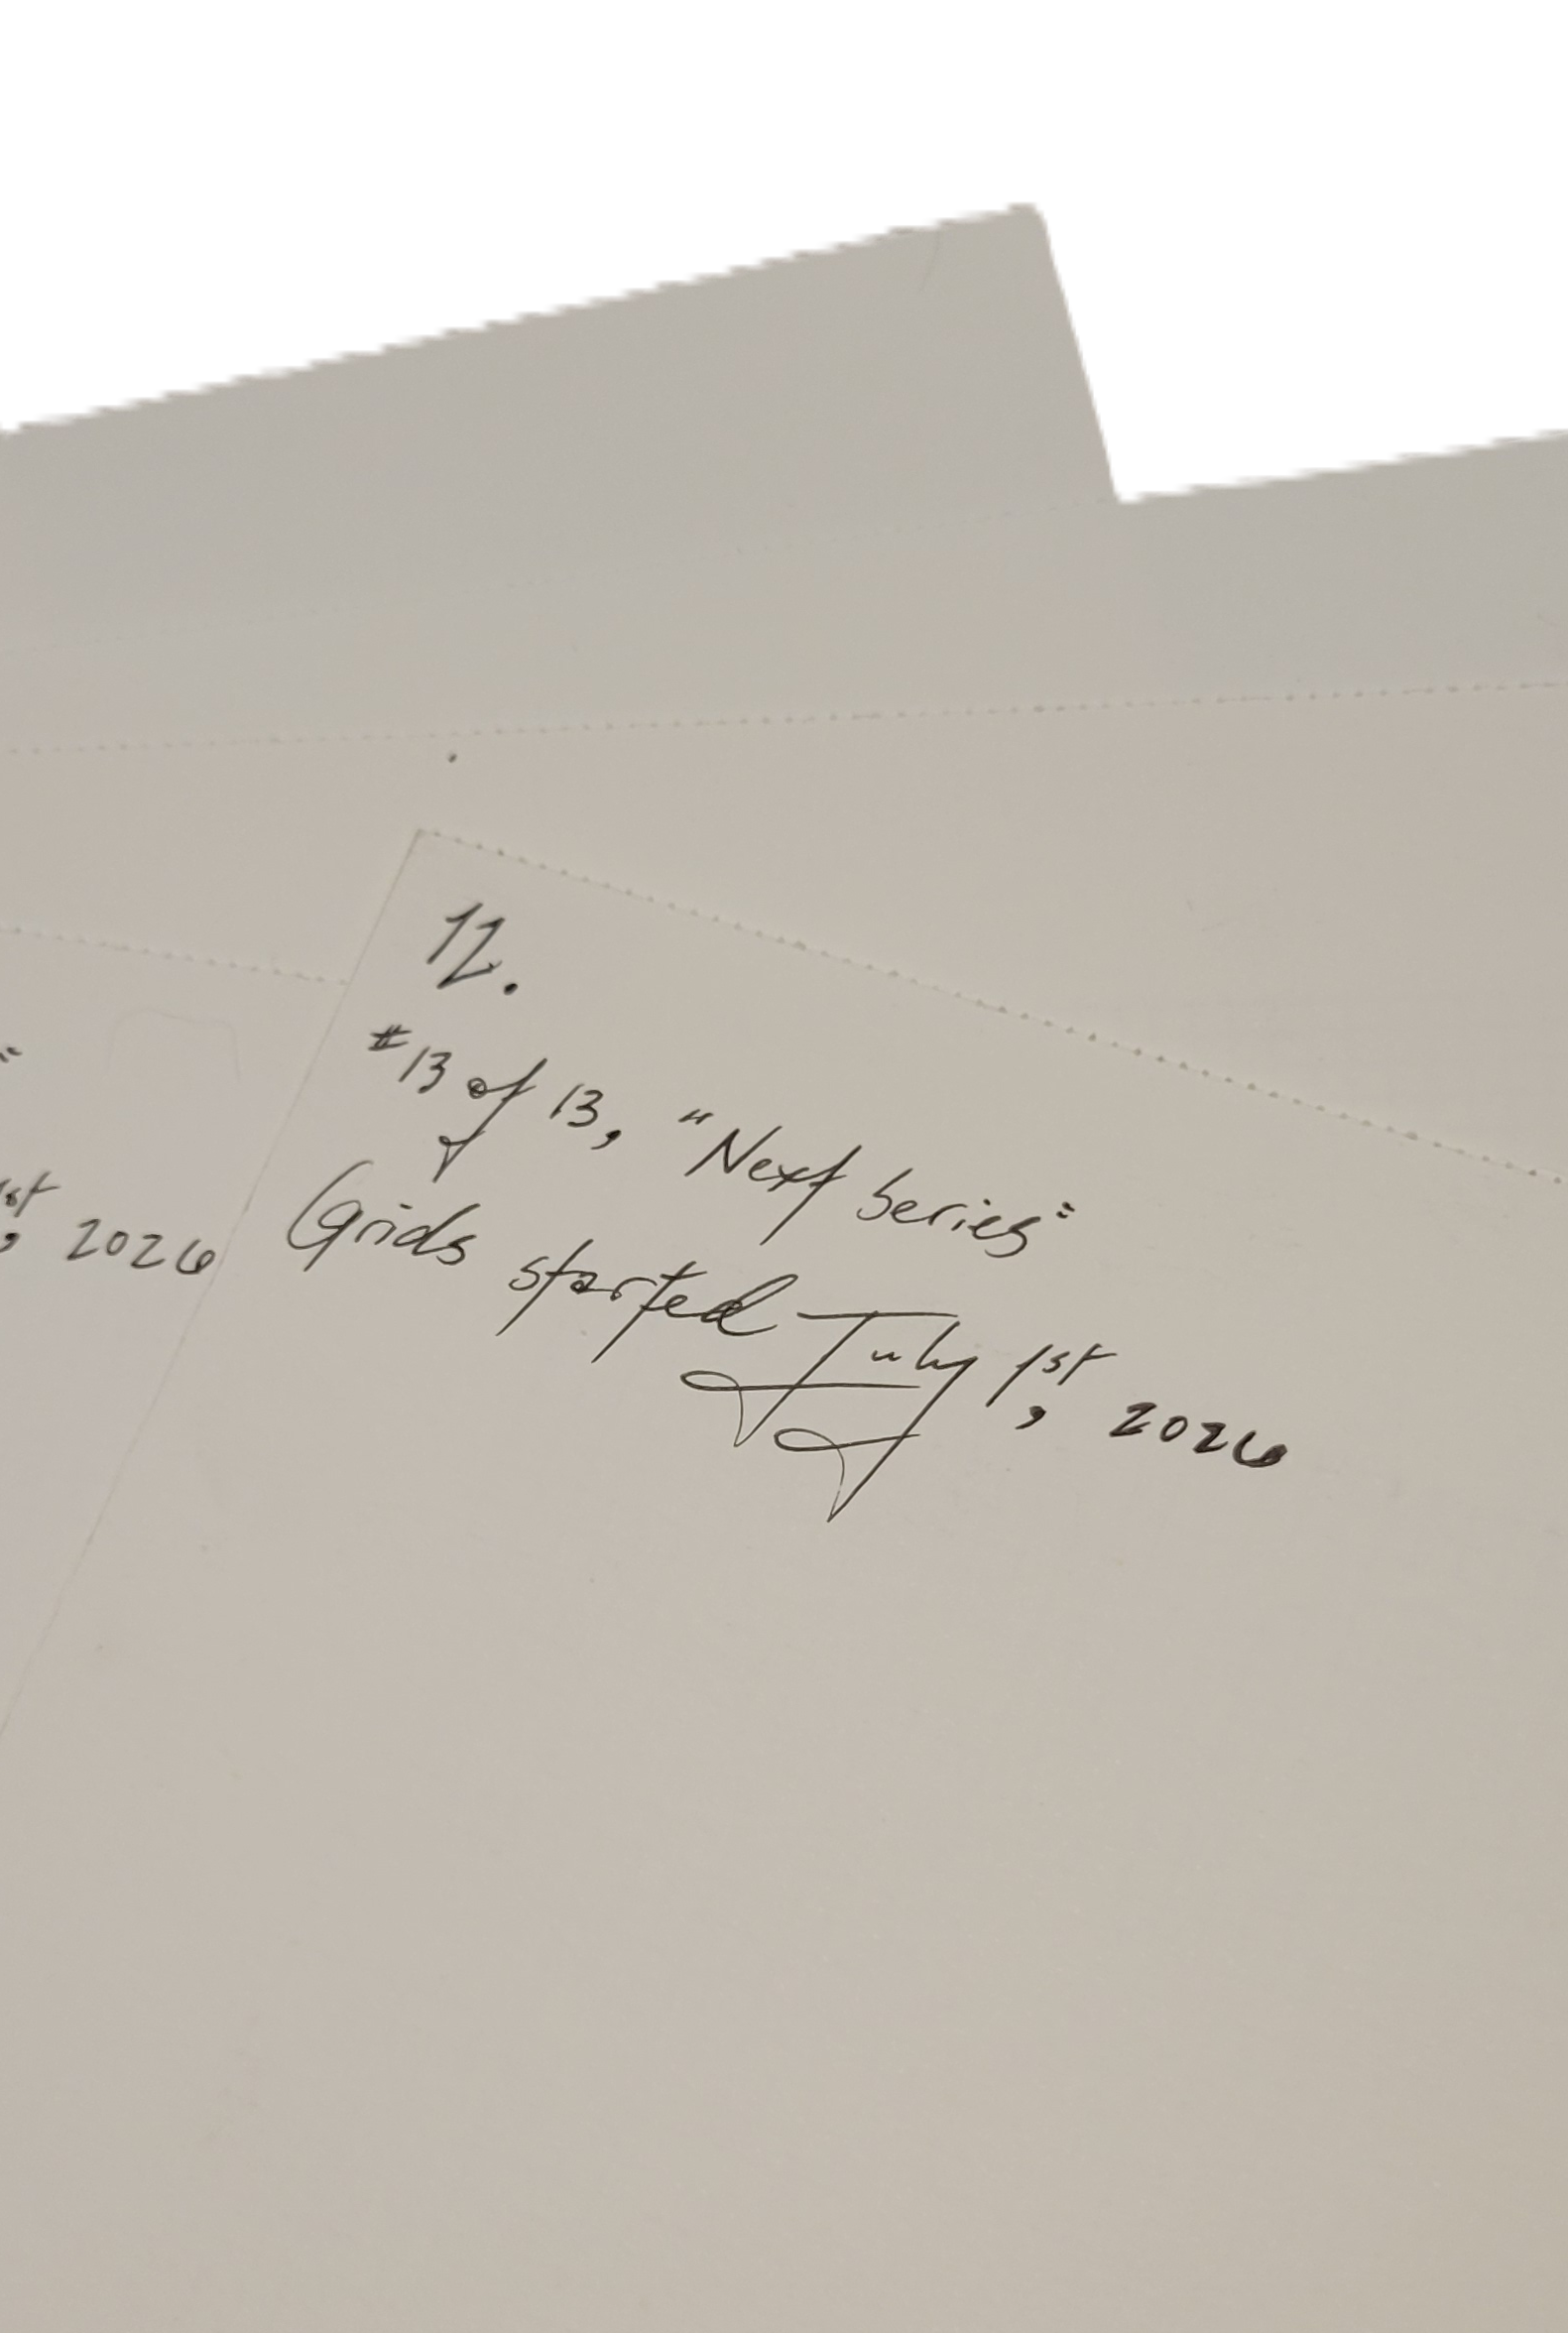 12.
#13 of 13, "Next Series"
Grids started July 1st, 2026
1st, 2026